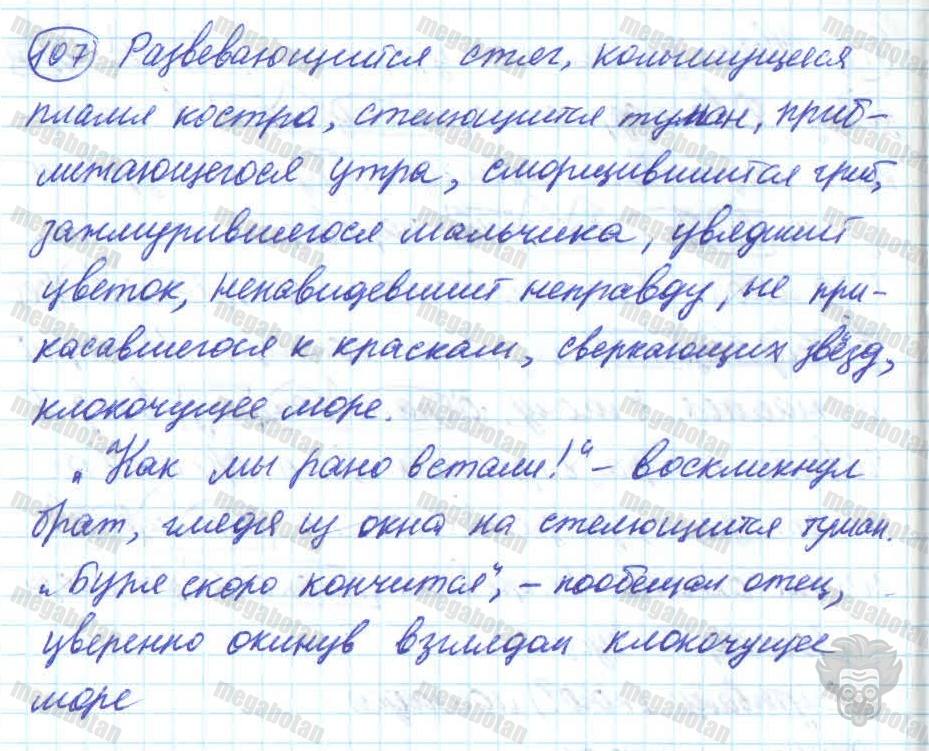 107 Развевающийся стяг, колышущееся
пламя костра, стелющийся туман, приб-
лижающегося утра, сморщившийся гриб,
зажмурившегося мальчика, увядший
цветок, ненавидевший неправду, не при-
касавшегося к краскам, сверкающих звёзд,
клокочущее море.
„Как мы рано встали!“ – воскликнул
брат, глядя из окна на стелющийся туман.
„Буря скоро кончится“, – пообещал отец,
уверенно окинув взглядом клокочущее
море
megabotan